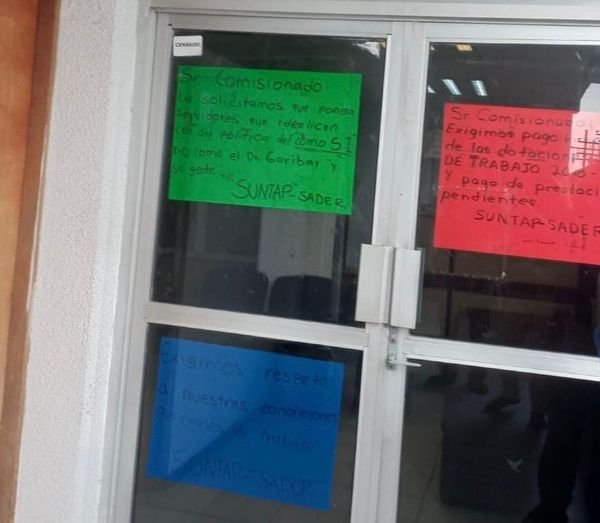 CENSADO
Sr Comisionado.
Le solicitamos que ponga
seguidores que idealicen
con su política del como SI
no como el Dr. Garibay y
su gente.
SUNTAP-SADER
Sr Comisionado
Exigimos pago
de las dotacion
DE TRABAJO
y pago de prestaci
pendientes.
SUNTAP-SADER
Exigimos respeto
a nuestras condiciones
generales de trabajo
SUNTAP-SADER